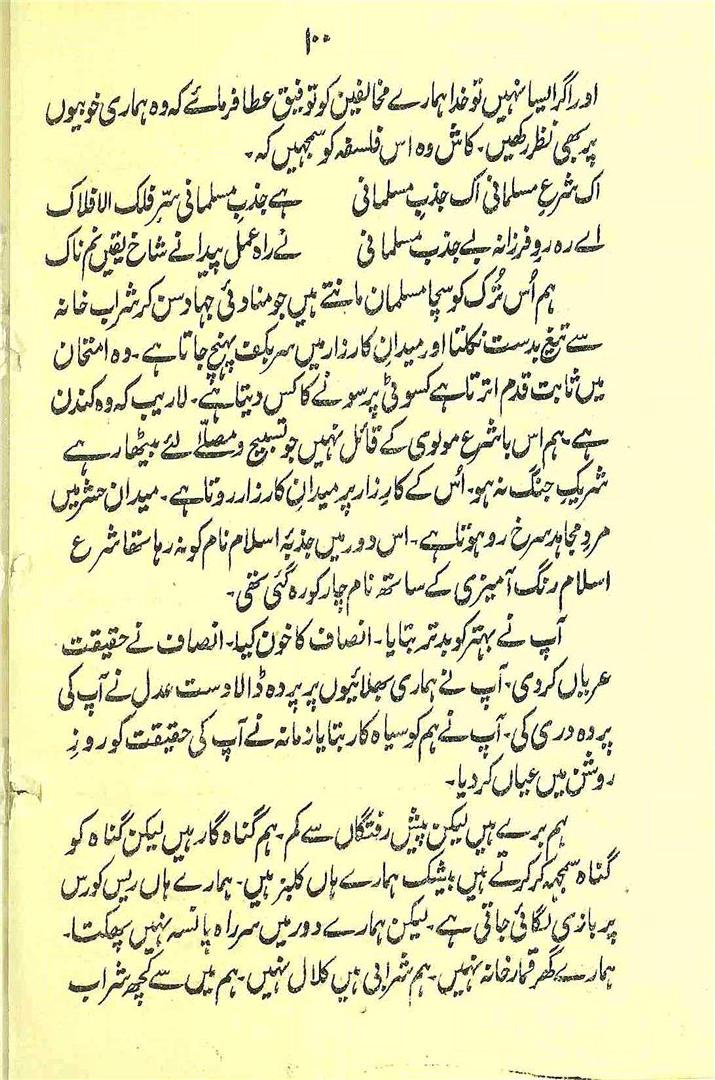 ۱۰۰
اور اگر ایسا نہیں تو خدا ہمارے مخالفین کو توفیق عطا فرمائے کہ وہ ہماری خوبیوں
پر بھی نظر رکھیں۔ کاش وہ اس فلسفہ کو سمجہیں کہ۔
اک شرعِ مسلمانی اک جذبِ مسلمانی ہے جذبِ مسلمانی سرِّ فلک الافلاک
اے رہ روِ فرزانہ بے جذبِ مسلمانی نے راہ عمل پیدا نے شاخِ یقیں نم ناک
ہم اُس تُرک کو سچا مسلمان مانتے ہیں جو منادئی جہاد سن کر شراب خانہ
سے تیغ بدست نکلتا اور میدانِ کارزار میں سر بکف پہنچ جاتا ہے۔ وہ امتحان
میں ثابت قدم اترتا ہے کسوٹی پر سونے کا کس دیتا ہے۔ لاریب کہ وہ کندن
ہے۔ ہم اس با شرع مولوی کے قائل نہیں جو تسبیح و مصلّا لئے بیٹھا رہے
شریکِ جنگ نہ ہو۔ اُس کے کارِ زار پر میدانِ کارزار روتا ہے۔ میدان حشر میں
مردِ مجاہد سرخ رو ہوتا ہے۔ اس دور میں جذبۂ اسلام نام کو نہ رہا ستھا شرع
اسلام رنگ آمیزی کے ساتھ نام چار کو رہ گئی تھی۔
آپ نے بہتر کو بدتر بتایا۔ انصاف کا خون کیا۔ انصاف نے حقیقت
عریاں کر دی۔ آپ نے ہماری بھلائیوں پر پردہ ڈالا دست عدل نے آپ کی
پردہ دری کی۔ آپ نے ہم کو سیاہ کار بتایا زمانہ نے آپ کی حقیقت کو روزِ
روشن میں عیاں کر دیا۔
ہم برے ہیں لیکن پیش رفتگاں سے کم۔ ہم گناہ گار ہیں لیکن گناہ کو
گناہ سمجہہ کر کرتے ہیں بیشک ہمارے ہاں کلبز ہیں۔ ہمارے ہاں ریس کورس
پر بازی لگائی جاتی ہے۔ لیکن ہمارے دور میں سرِراہ پانسہ نہیں پھکتا۔
ہمارے گھر قمار خانہ نہیں۔ ہم شرابی ہیں کلال نہیں۔ ہم میں سے کچھ شراب